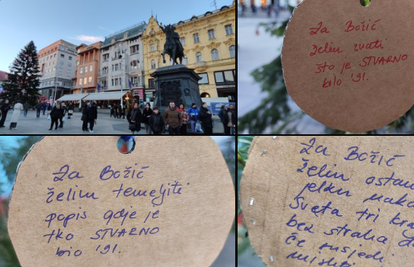 Za Božić
želim znati
što je STVARNO
bilo '91.
Za Božić
želim temeljiti
popis gdje je
tko STVARNO
bio '91.
Za Božić
želim ostav
jelku mako
Sveta tri
bez straha
će susjedi
mislit